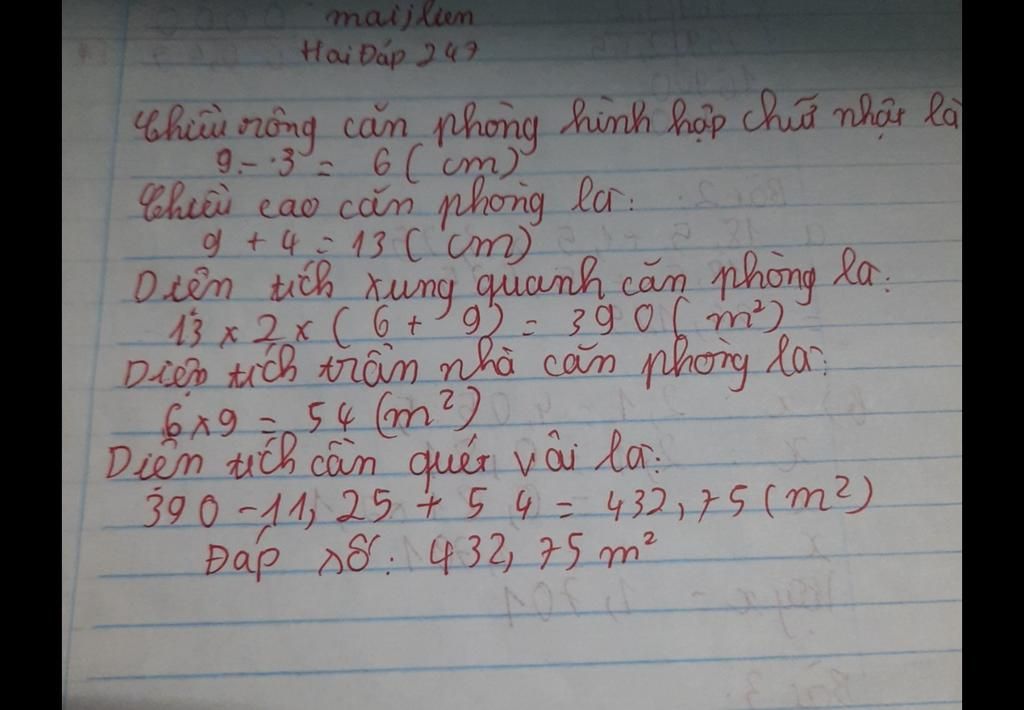 maijlien
Hai Đáp 247
Chiều rông căn phòng hình hập chữ nhật là
9 - 3 = 6 ( cm)
Chiều cao căn phòng là:
9 + 4 = 13 ( cm)
Diện tích xung quanh căn phòng là:
13 x 2 x ( 6 + 9) = 390 ( m²)
Diện tích trần nhà căn phòng là:
6 x 9 = 54 (m²)
Diện tích cần quét vôi là:
390 - 11, 25 + 5 4 = 432, 75 (m²)
Đáp số: 432, 75 m²